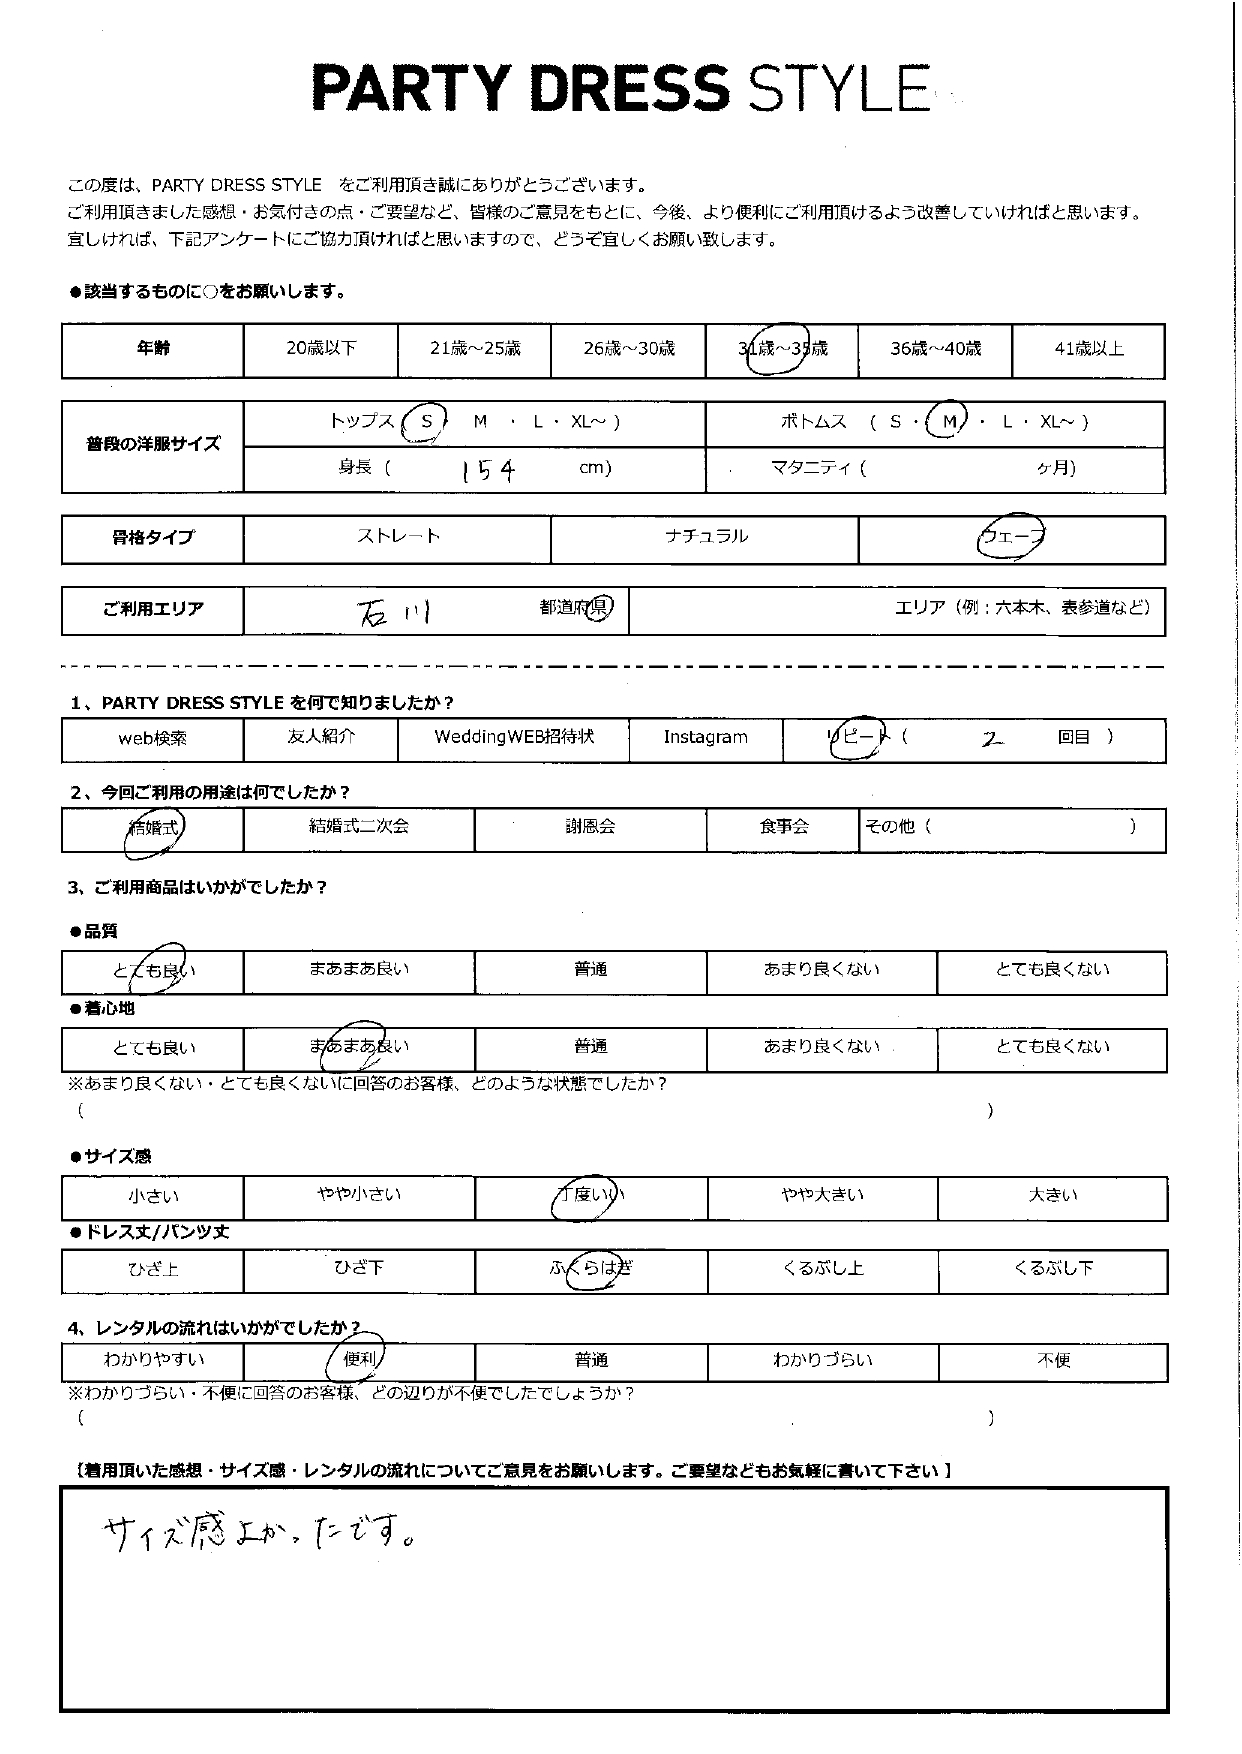 PARTY DRESS STYLE
この度は、PARTY DRESS STYLE　をご利用頂き誠にありがとうございます。
ご利用頂きました感想・お気付きの点・ご要望など、皆様のご意見をもとに、今後、より便利にご利用頂けるよう改善していければと思います。
宜しければ、下記アンケートにご協力頂ければと思いますので、どうぞ宜しくお願い致します。
●該当するものに○をお願いします。
年齢 20歳以下 21歳～25歳 26歳～30歳 31歳～35歳 36歳～40歳 41歳以上
普段の洋服サイズ
トップス ( S M ・ L ・ XL～ ) ボトムス ( S ・ M ・ L ・ XL～ )
身長 ( 154 cm) マタニティ ( ヶ月)
骨格タイプ ストレート ナチュラル ウェーブ
ご利用エリア 石川 都道府県 エリア（例：六本木、表参道など）
1、PARTY DRESS STYLE を何で知りましたか？
web検索 友人紹介 WeddingWEB招待状 Instagram リピート ( 2 回目 )
2、今回ご利用の用途は何でしたか？
結婚式 結婚式二次会 謝恩会 食事会 その他 ( )
3、ご利用商品はいかがでしたか？
●品質
とても良い まあまあ良い 普通 あまり良くない とても良くない
●着心地
とても良い まあまあ良い 普通 あまり良くない とても良くない
※あまり良くない・とても良くないに回答のお客様、どのような状態でしたか？
( )
●サイズ感
小さい やや小さい 丁度いい やや大きい 大きい
●ドレス丈/パンツ丈
ひざ上 ひざ下 ふくらはぎ くるぶし上 くるぶし下
4、レンタルの流れはいかがでしたか？
わかりやすい 便利 普通 わかりづらい 不便
※わかりづらい・不便に回答のお客様、どの辺りが不便でしたでしょうか？
( )
【着用頂いた感想・サイズ感・レンタルの流れについてご意見をお願いします。ご要望などもお気軽に書いて下さい】
サイズ感よかったです。